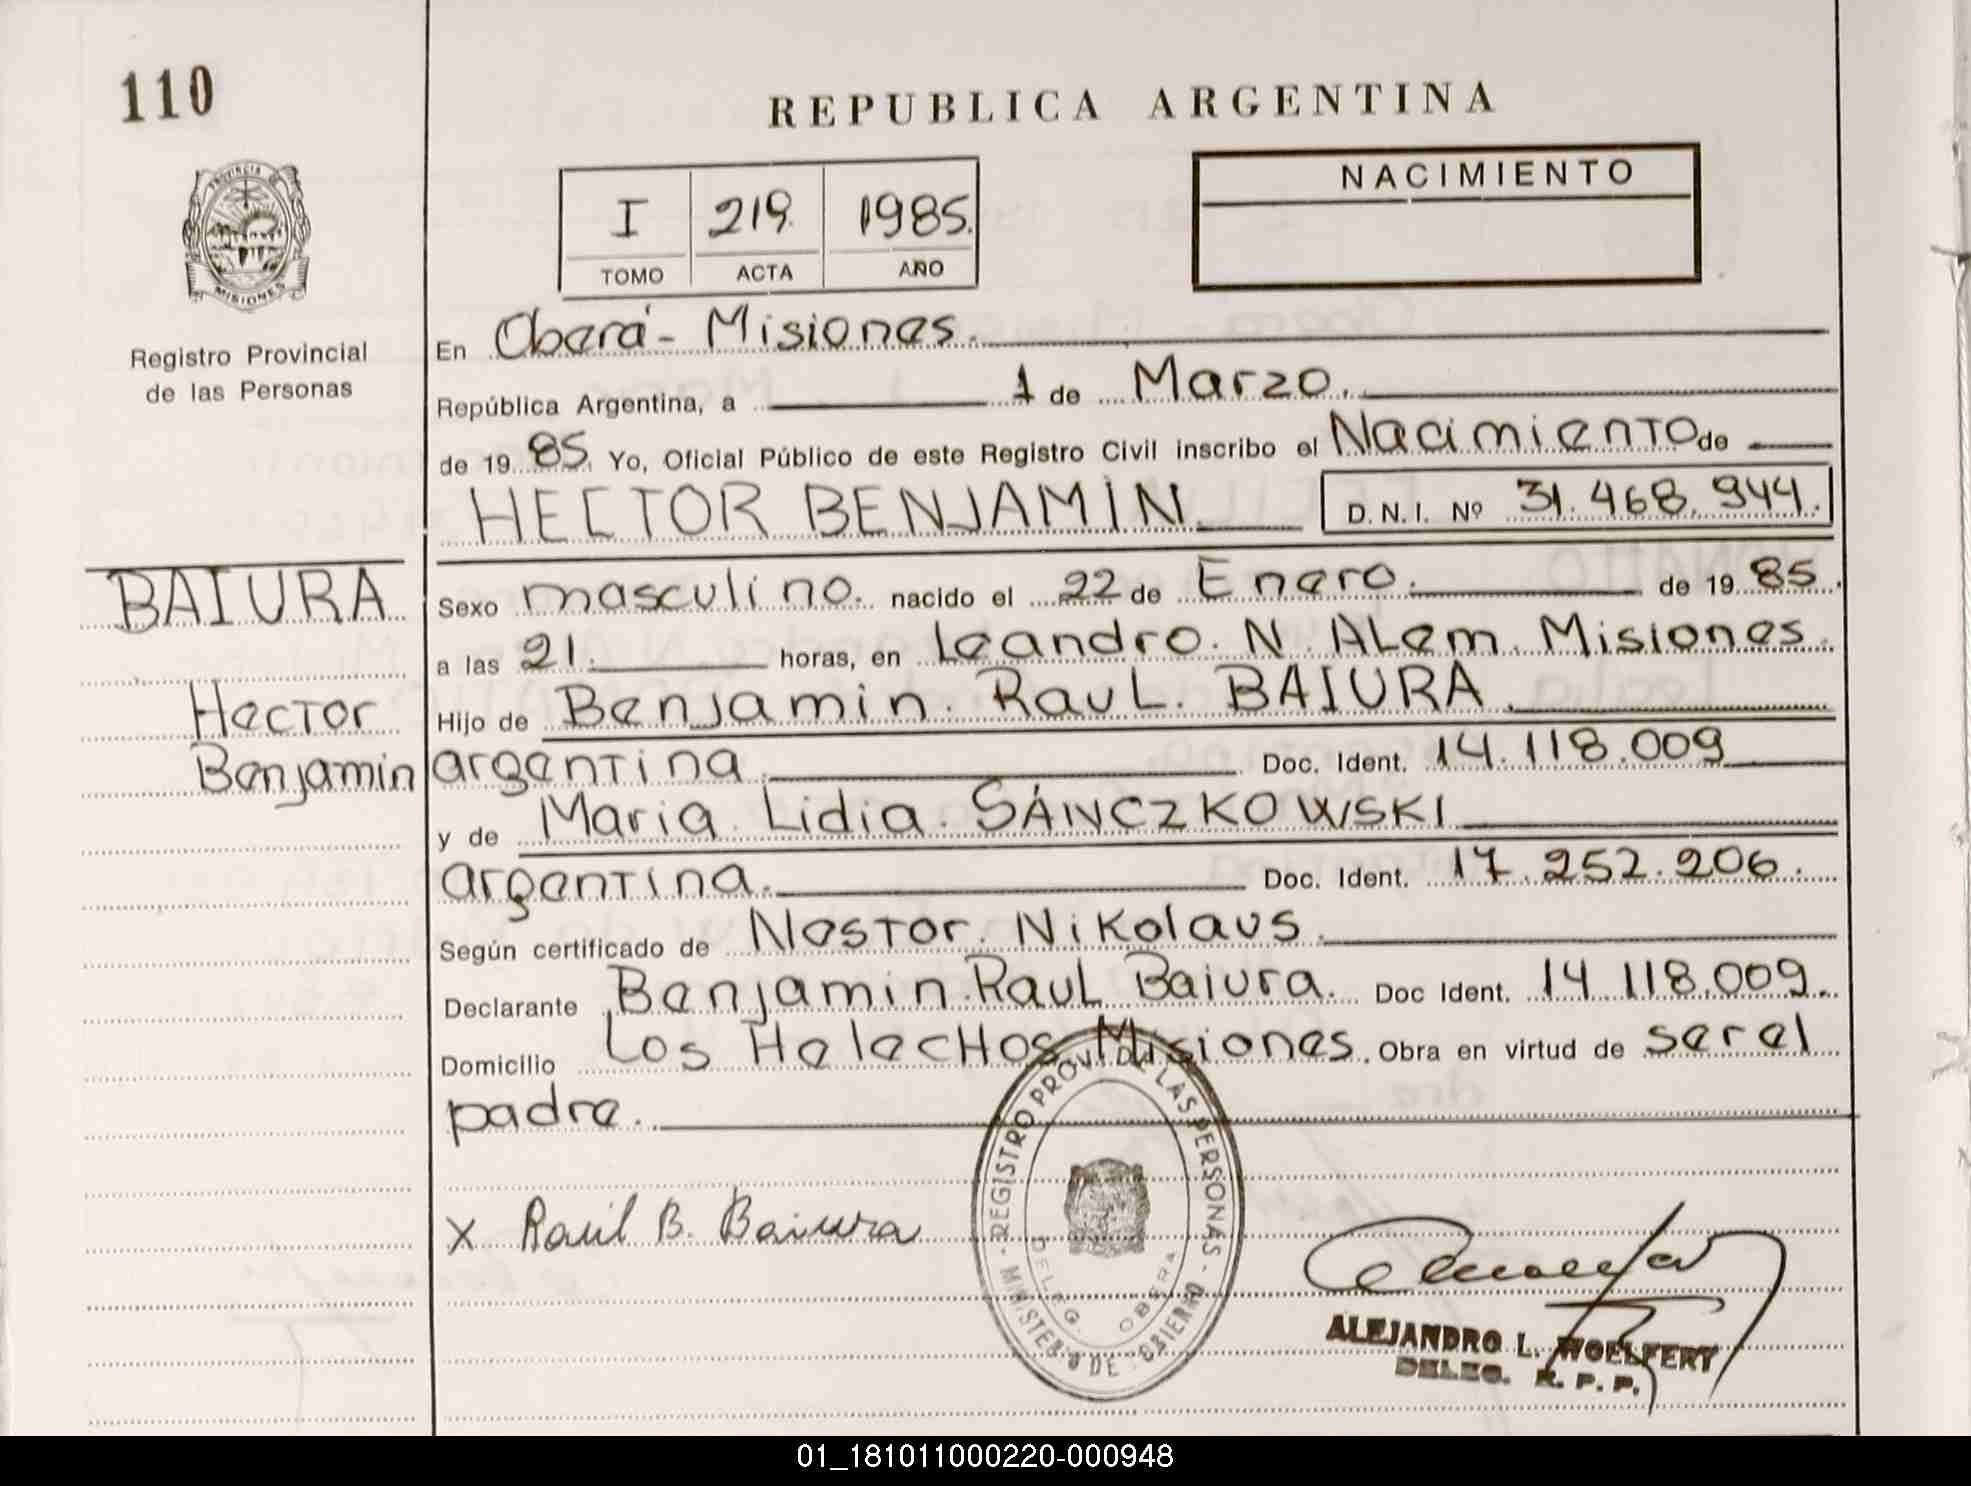 110
REPUBLICA ARGENTINA
PROVINCIA DE
MISIONES
Registro Provincial
de las Personas
I 219. 1985.
TOMO ACTA AÑO
NACIMIENTO
En Oberá - Misiones.
República Argentina, a 1 de Marzo.
de 19 85. Yo, Oficial Público de este Registro Civil inscribo el Nacimiento de
HECTOR BENJAMIN D.N.I. Nº 31.468.944.
BAIURA
Hector
Benjamin
Sexo masculino. nacido el 22 de Enero. de 19 85.
a las 21. horas, en Leandro. N. ALem. Misiones.
Hijo de Benjamin. RauL. BAIURA
argentina. Doc. Ident. 14.118.009
y de Maria. Lidia. SÁNCZKOWSKI
argentina. Doc. Ident. 17.252.206.
Según certificado de Nestor. Nikolaus.
Declarante Benjamin. RauL Baiura. Doc Ident. 14.118.009.
Domicilio Los Helechos Misiones. Obra en virtud de ser el
padre.
X Raúl B. Baiura
REGISTRO PROV. DE LAS PERSONAS - MINISTERIO DE GOBIERNO
DELEG. OBERA
ALEJANDRO L. WOELFERT
DELEG. R.P.P.
01_181011000220-000948